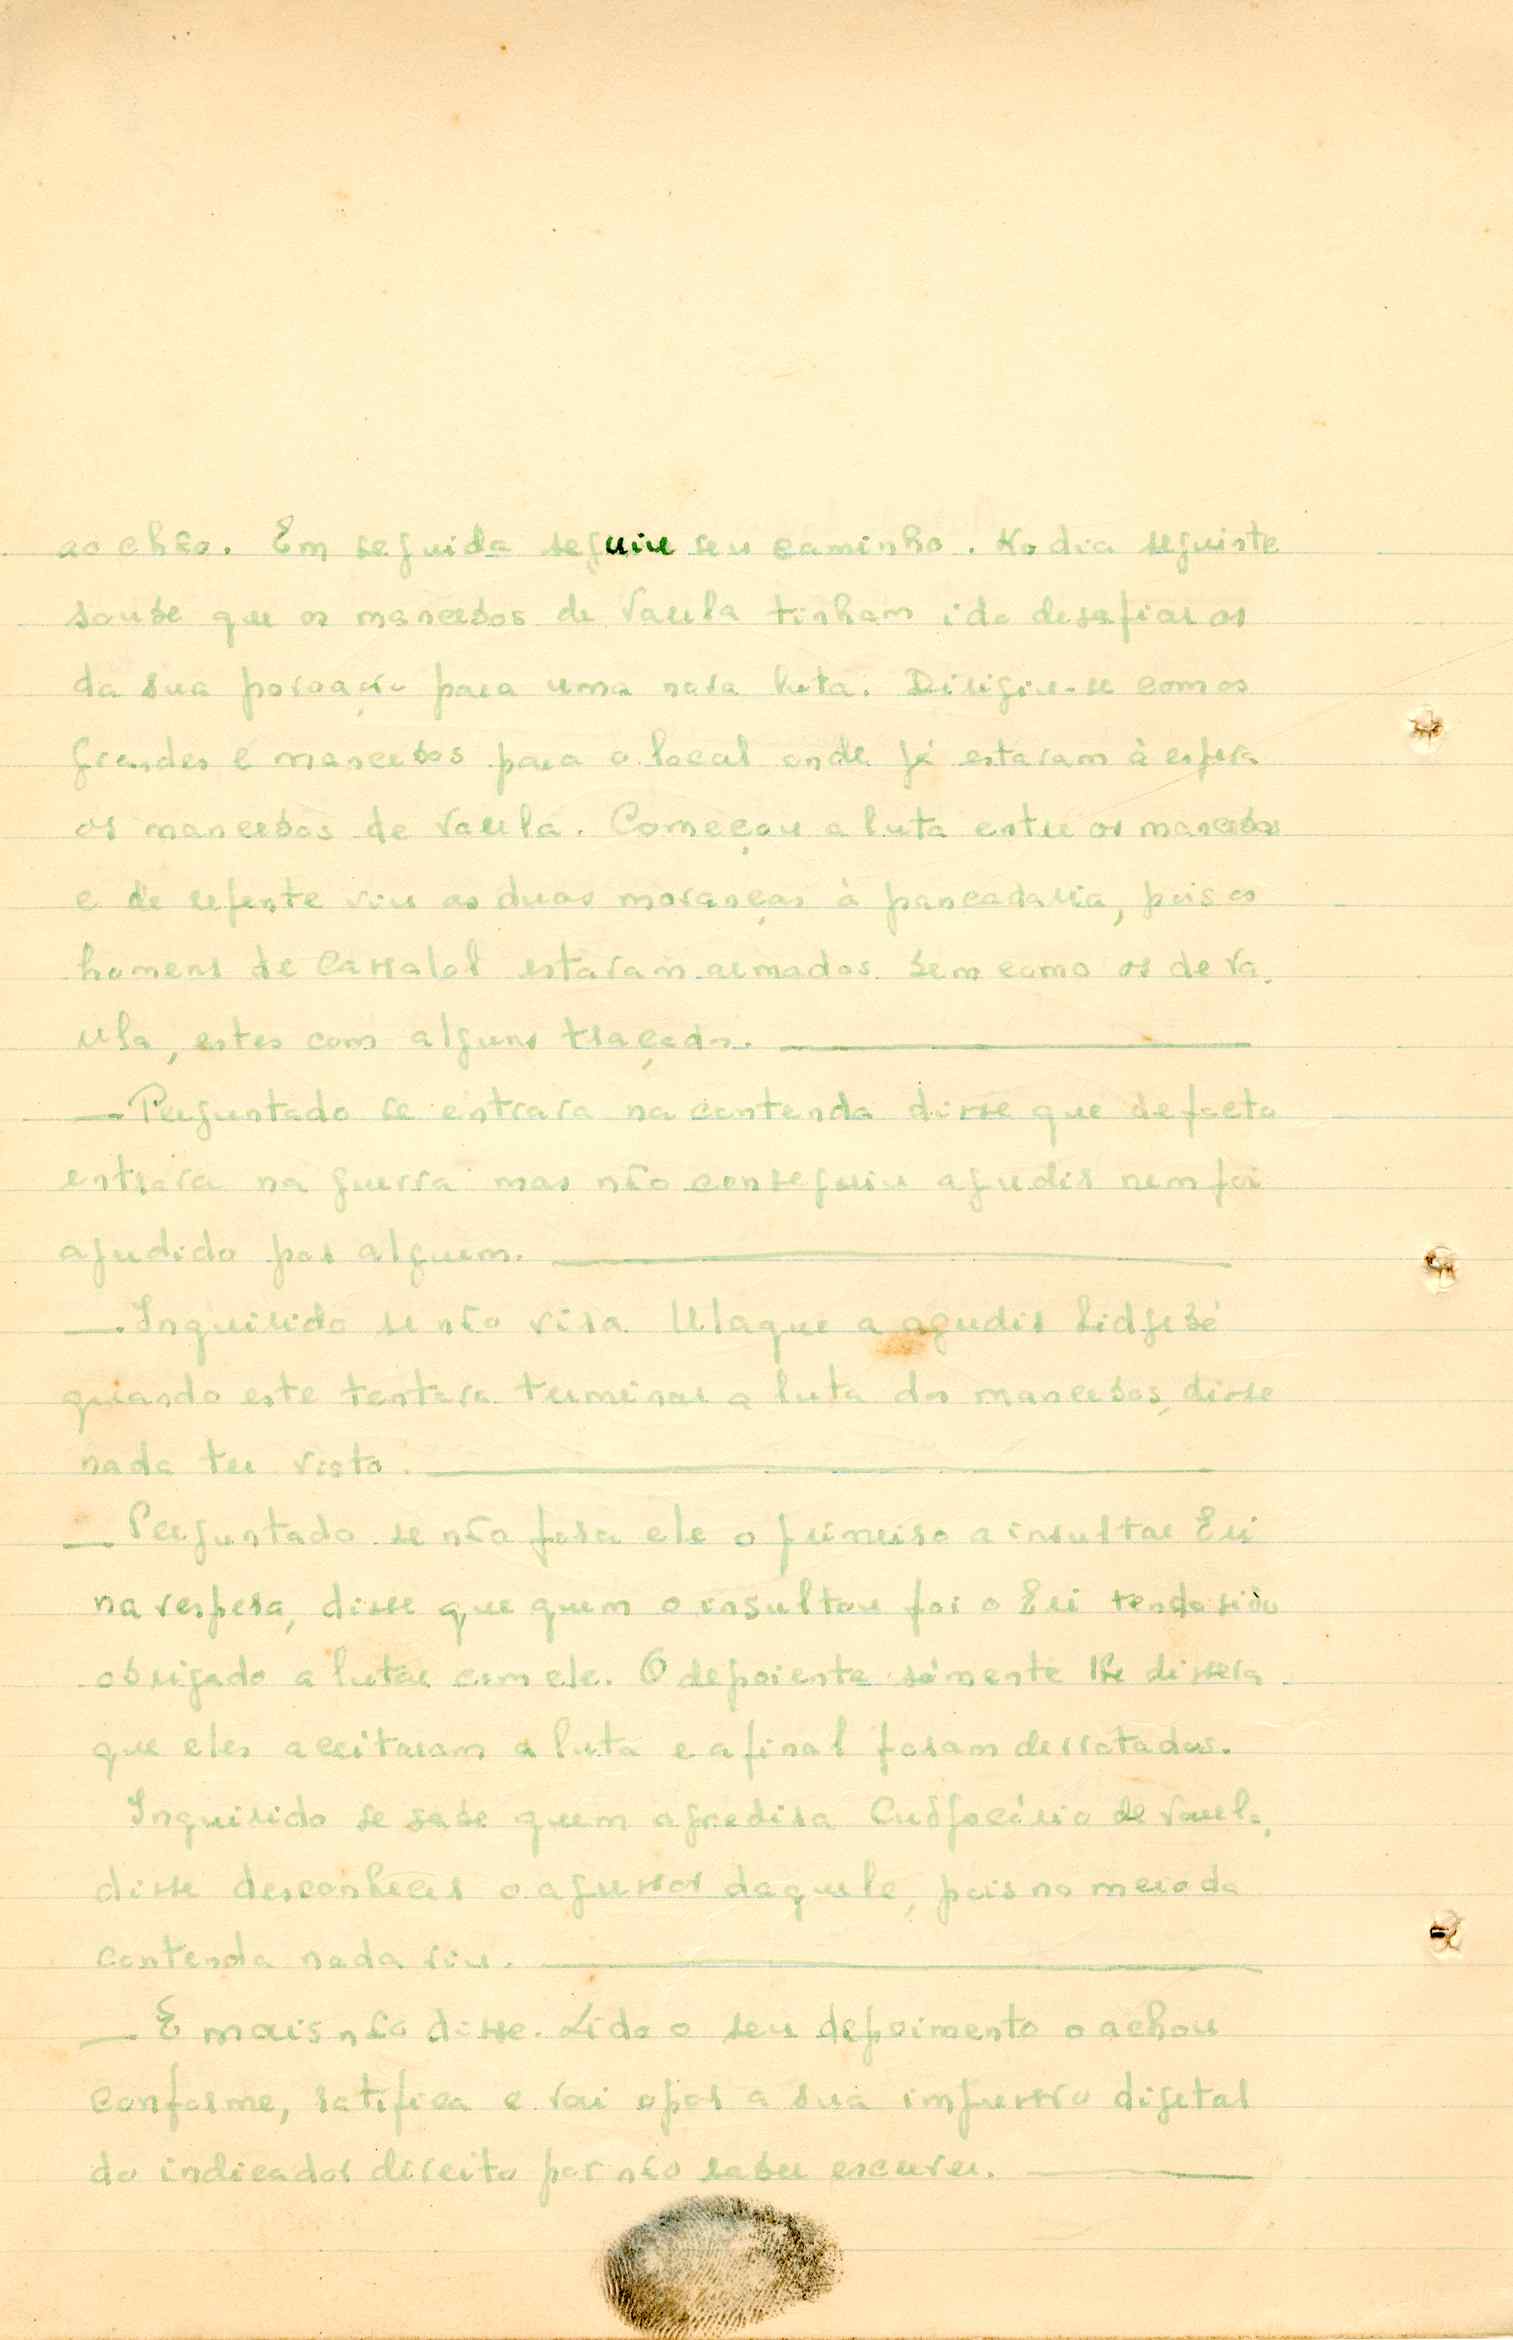 ao chão. Em seguida seguiu seu caminho. No dia seguinte
soube que os mancebos de Varela tinham ido desafiar os
da sua povoação para uma nova luta. Dirigiu-se com os
grandes e mancebos para o local onde já estavam à espera
os mancebos de Varela. Começou a luta entre os mancebos
e de repente viu as duas moranças à pancadaria, pois os
homens de Cassalol estavam armados bem como os de Va
rela, estes com alguns traçados.
— Perguntado se entrara na contenda disse que de facto
entrara na guerra mas não conseguiu agredir nem foi
agredido por alguem.
— Inquirido se não vira Ulaque a agredir Lidjebé
quando este tentara terminar a luta dos mancebos, disse
nada ter visto.
— Perguntado se não fora ele o primeiro a insultar Eri
na vespera, disse que quem o insultou foi o Eri tendo sido
obrigado a lutar com ele. O depoiente sómente lhe dissera
que eles aceitaram a luta e afinal foram derrotados.
Inquirido se sabe quem agredira de Varela,
disse desconhecer o agressor daquele, pois no meio da
contenda nada viu.
— E mais não disse. Lido o seu depoimento o achou
conforme, ratifica e vai apor a sua impressão digital
do indicador direito por não saber escrever.